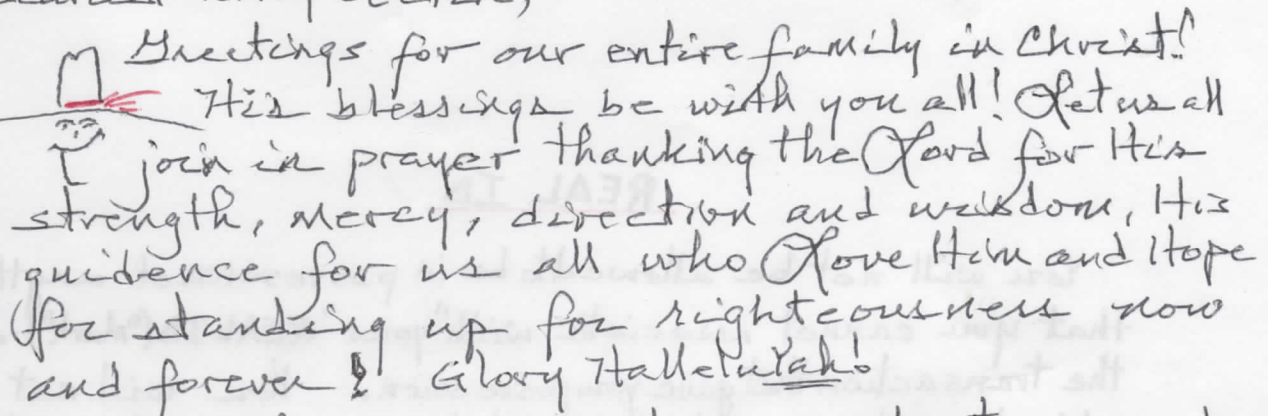 Greetings for our entire family in Christ!
His blessings be with you all! Let us all
join in prayer thanking the Lord for His
strength, mercy, direction and wisdom, His
guidence for us all who Love Him and Hope
for standing up for righteousness now
and forever! Glory HalleluYah!
REAL